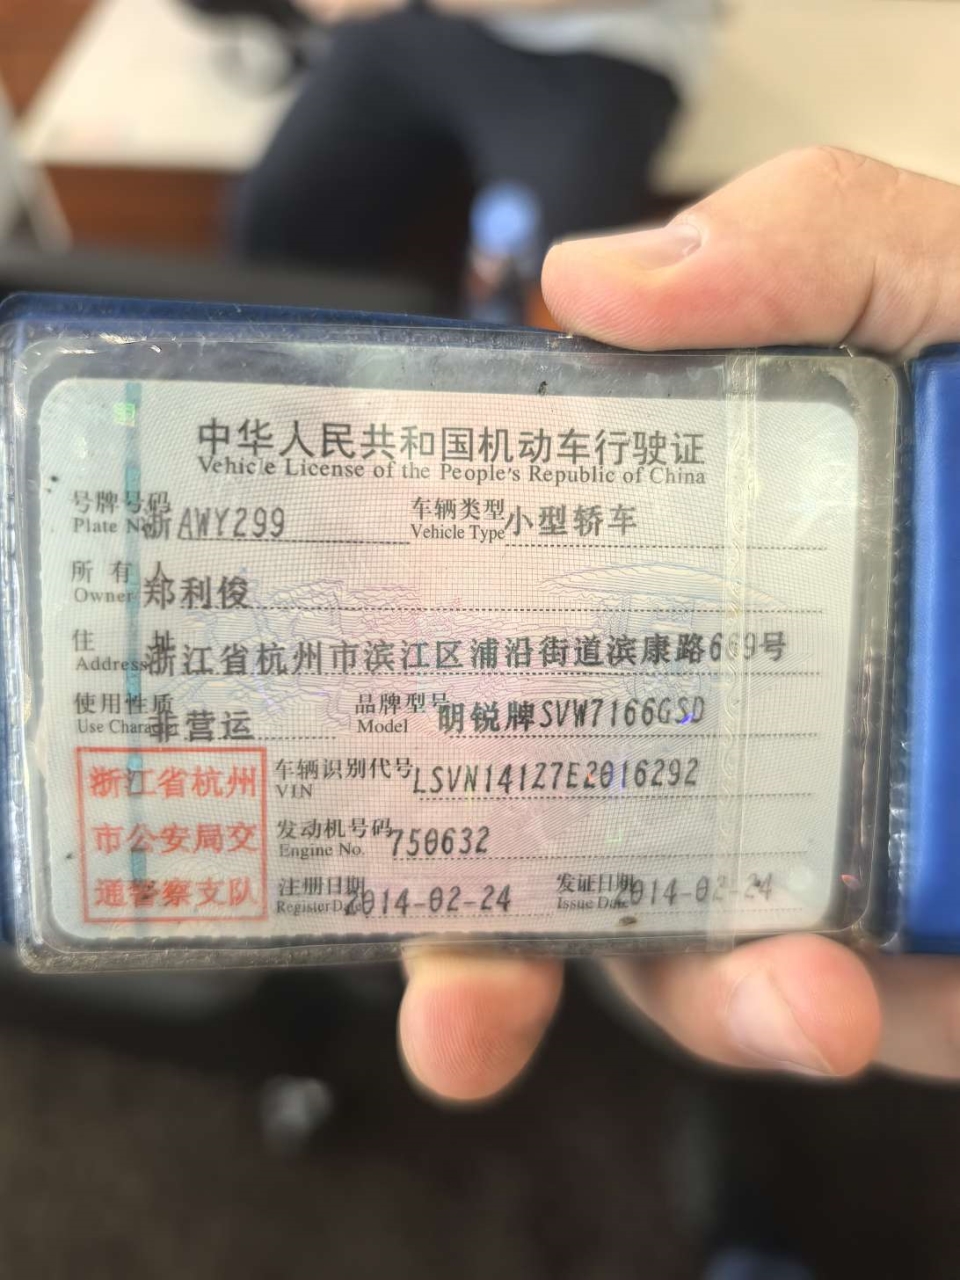 中华人民共和国机动车行驶证
Vehicle License of the People's Republic of China
号牌号码 浙AWY299 车辆类型 小型轿车
Plate No. Vehicle Type
所有人 郑利俊
Owner
住址 浙江省杭州市滨江区浦沿街道滨康路669号
Address
使用性质 非营运 品牌型号 明锐牌SVW7166GSD
Use Character Model
浙江省杭州
市公安局交
通警察支队
车辆识别代号 LSVN141Z7E2016292
VIN
发动机号码 750632
Engine No.
注册日期 2014-02-24 发证日期 2014-02-24
Register Date Issue Date